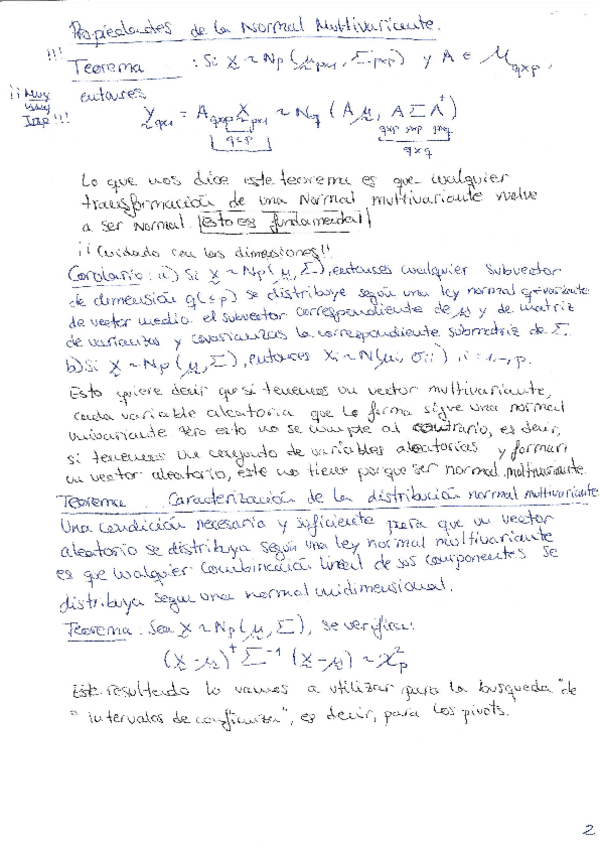 Propiedades de la Normal Multivariante.
!!! Teorema : Si X ~ Np (μpx1, Σpxp) y A ∈ Mqxp,
¡¡Muy Muy Imp!!! entonces
Yqx1 = Aqxp Xpx1 ~ Nq (A μ, A Σ A^t)
q≤p qxp pxp pxq
qxq
Lo que nos dice este teorema es que cualquier
transformación de una Normal multivariante vuelve
a ser Normal. ¡Esto es fundamental!
¡¡Cuidado con las dimensiones!!
Corolario: a) Si X ~ Np(μ, Σ), entonces cualquier subvector
de dimensión q(≤p) se distribuye según una ley normal q-variante
de vector medio el subvector correspondiente de μ y de matriz
de varianzas y covarianzas la correspondiente submatriz de Σ.
b) Si X ~ Np(μ, Σ), entonces Xi ~ N(μi, σii), i=1,…,p.
Esto quiere decir que si tenemos un vector multivariante,
cada variable aleatoria que lo forma sigue una normal
univariante. Pero esto no se cumple al contrario, es decir,
si tenemos un conjunto de variables aleatorias y forman
un vector aleatorio, este no tiene porque ser normal multivariante.
Teorema Caracterización de la distribución normal multivariante
Una condición necesaria y suficiente para que un vector
aleatorio se distribuya según una ley normal multivariante
es que cualquier combinación lineal de sus componentes se
distribuya segun una normal unidimensional.
Teorema: Sea X ~ Np(μ, Σ), se verifica:
(X-μ)^t Σ^-1 (X-μ) ~ χ²p
Este resultado lo vamos a utilizar para la busqueda de
"intervalos de confianza", es decir, para los pivots.
2